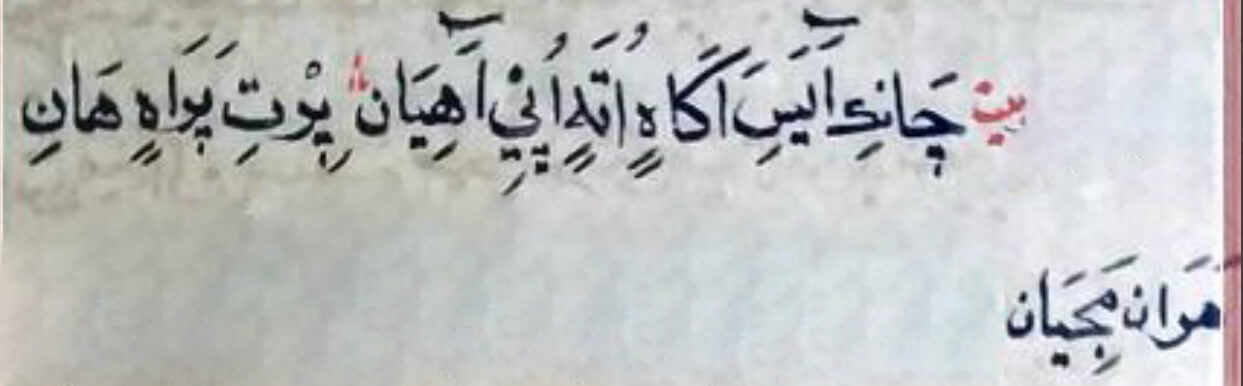 بيت چَانڪِ آيَسِ آڪَاهِ اُتَهِ اُنِيِّ آهِيَان پِرْتِ پَرَاهِ هَانِ
هَرَانَ مَجِيَان